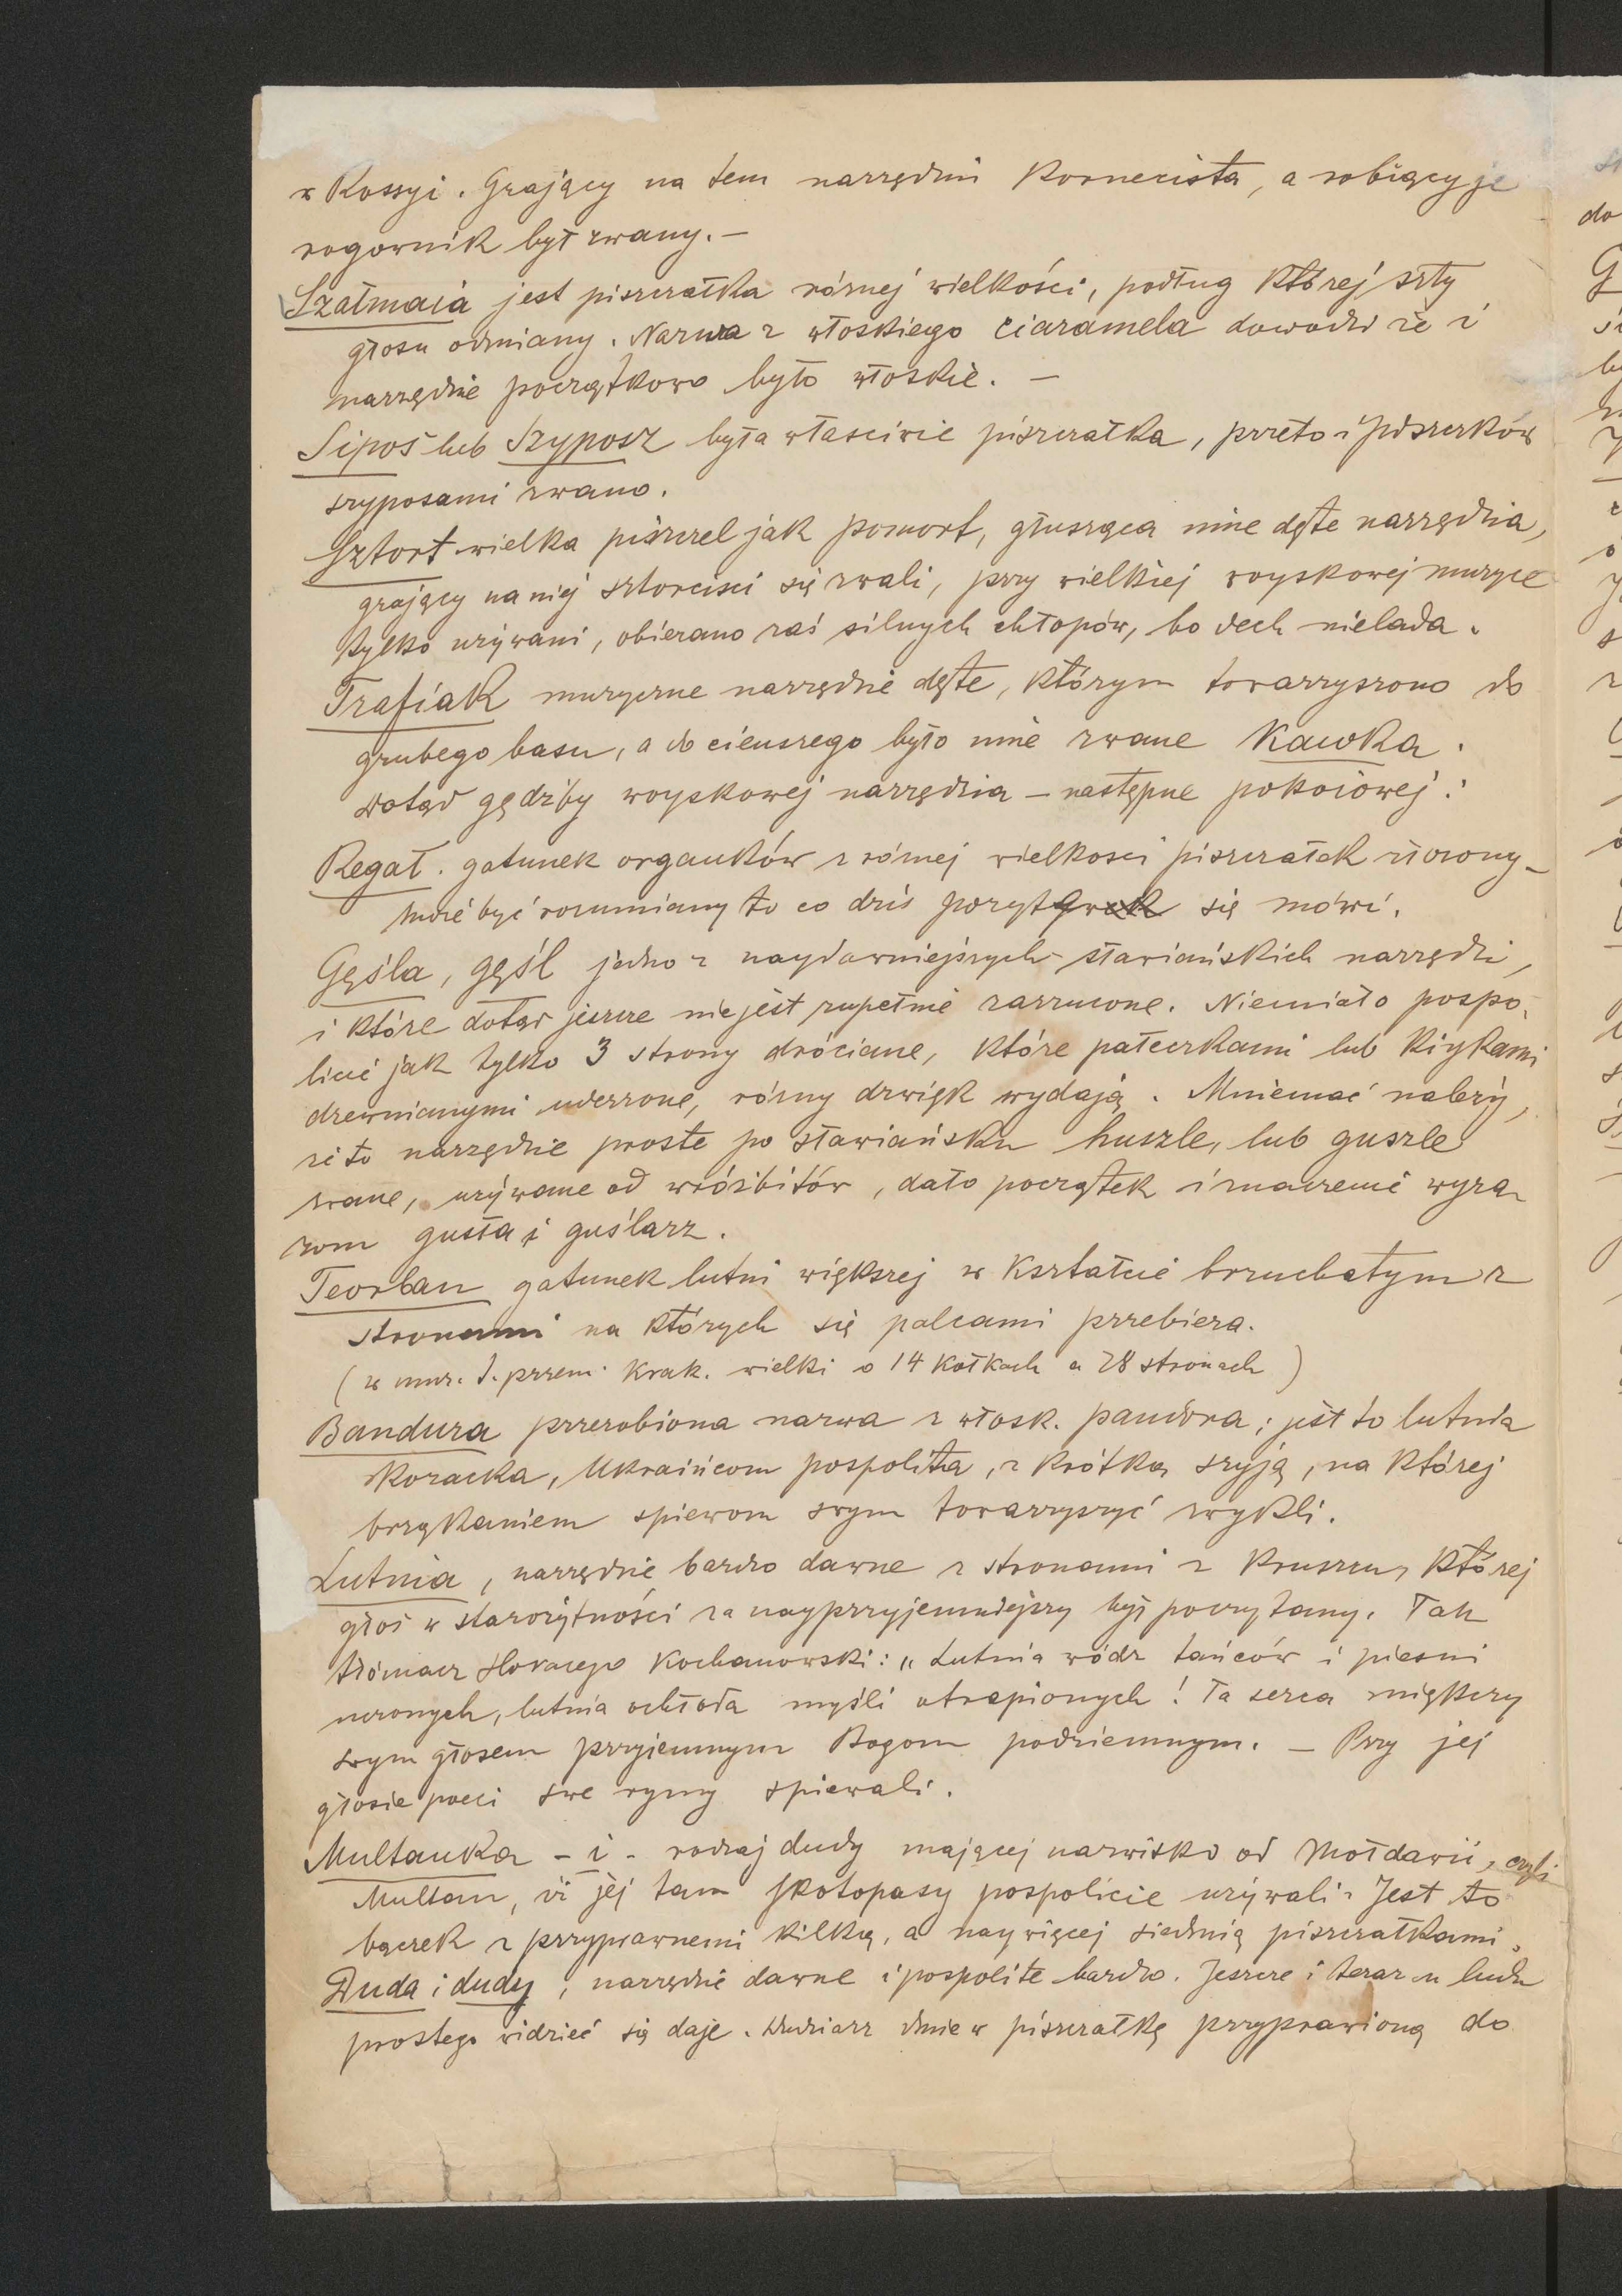 w Rossyi. Grający na tem narzędziu Kornecista, a robiący je
rogownik był zwany. –
Szałmaia jest piszczałka różnej wielkości, podług której szły
głosu odmiany. Nazwa z włoskiego ciaramela dowodzi że i
narzędzie początkowo było włoskie. –
Sipoś lub Szyposz była właściwie piszczałka, przeto i piszczków
szyposami zwano.
Sztort wielka piszczel jak pomort, głusząca inne dęte narzędzia,
grający na niej sztorciści się zwali, przy wielkiej woyskowej muzyce
tylko używani, obierano zaś silnych chłopów, bo dech nielada.
Trafiak muzyczne narzędzie dęte, którym towarzyszono do
grubego basu, a do cieńszego było inne zwane Kawka.
Dotąd gędźby woyskowej narzędzia – następne pokoiowej:
Regał. gatunek organków z różnej wielkości piszczałek złożony –
może być rozumiany to co dziś pozyt się mówi.
Gęśla, gęśl jedno z naydawniejszych sławiańskich narzędzi,
i które dotąd jeszcze nie jest zupełnie zarzucone. Niemiało pospo-
licie jak tylko 3 strony dróciane, które pałeczkami lub kiykami
drzewnianymi uderzone, różny dzwięk wydają. Mniemać należy,
że to narzędzie proste po sławiańsku huszle, lub guszle
zwane, używane od wróżbitów, dało początek i znaczenie wyra-
zom gusła i guślarz.
Teorban gatunek lutni większej w kształcie brzuchatym z
stronami na których się palcami przebiera.
(w muz. t. przem. Krak. wielki o 14 kołkach a 28 stronach)
Bandura przerobiona nazwa z włosk. pandora; jest to lutnia
kozacka, Ukraińcom pospolita, z krótką szyją, na której
brząkaniem spiewom swym towarzyszyć zwykli.
Lutnia, narzędzie bardzo dawne z stronami z kruszcu, której
głos w starożytności za nayprzyjemniejszy był poczytany. Tak
tłómacz Horacego Kochanowski: „Lutnia wódz tańców i piesni
uczonych, lutnia ochłoda myśli utrapionych! Ta serca miękczy
swym głosem przyiemnym Bogom podziemnym. – Przy jej
głosie poeci swe rymy spiewali.
Multanka – i – rodzaj dudy mającej nazwisko od Mołdawii, czyli
Multan, iż jej tam skotopasy pospolicie używali. Jest to
bączek z przyprawnemi kilką, a naywięcej siedmią piszczałkami.
Duda i dudy, narzędzie dawne i pospolite bardzo. Jeszcze i teraz u ludu
prostego widzieć się daje. Dudziarz dmie w piszczałkę przyprawioną do